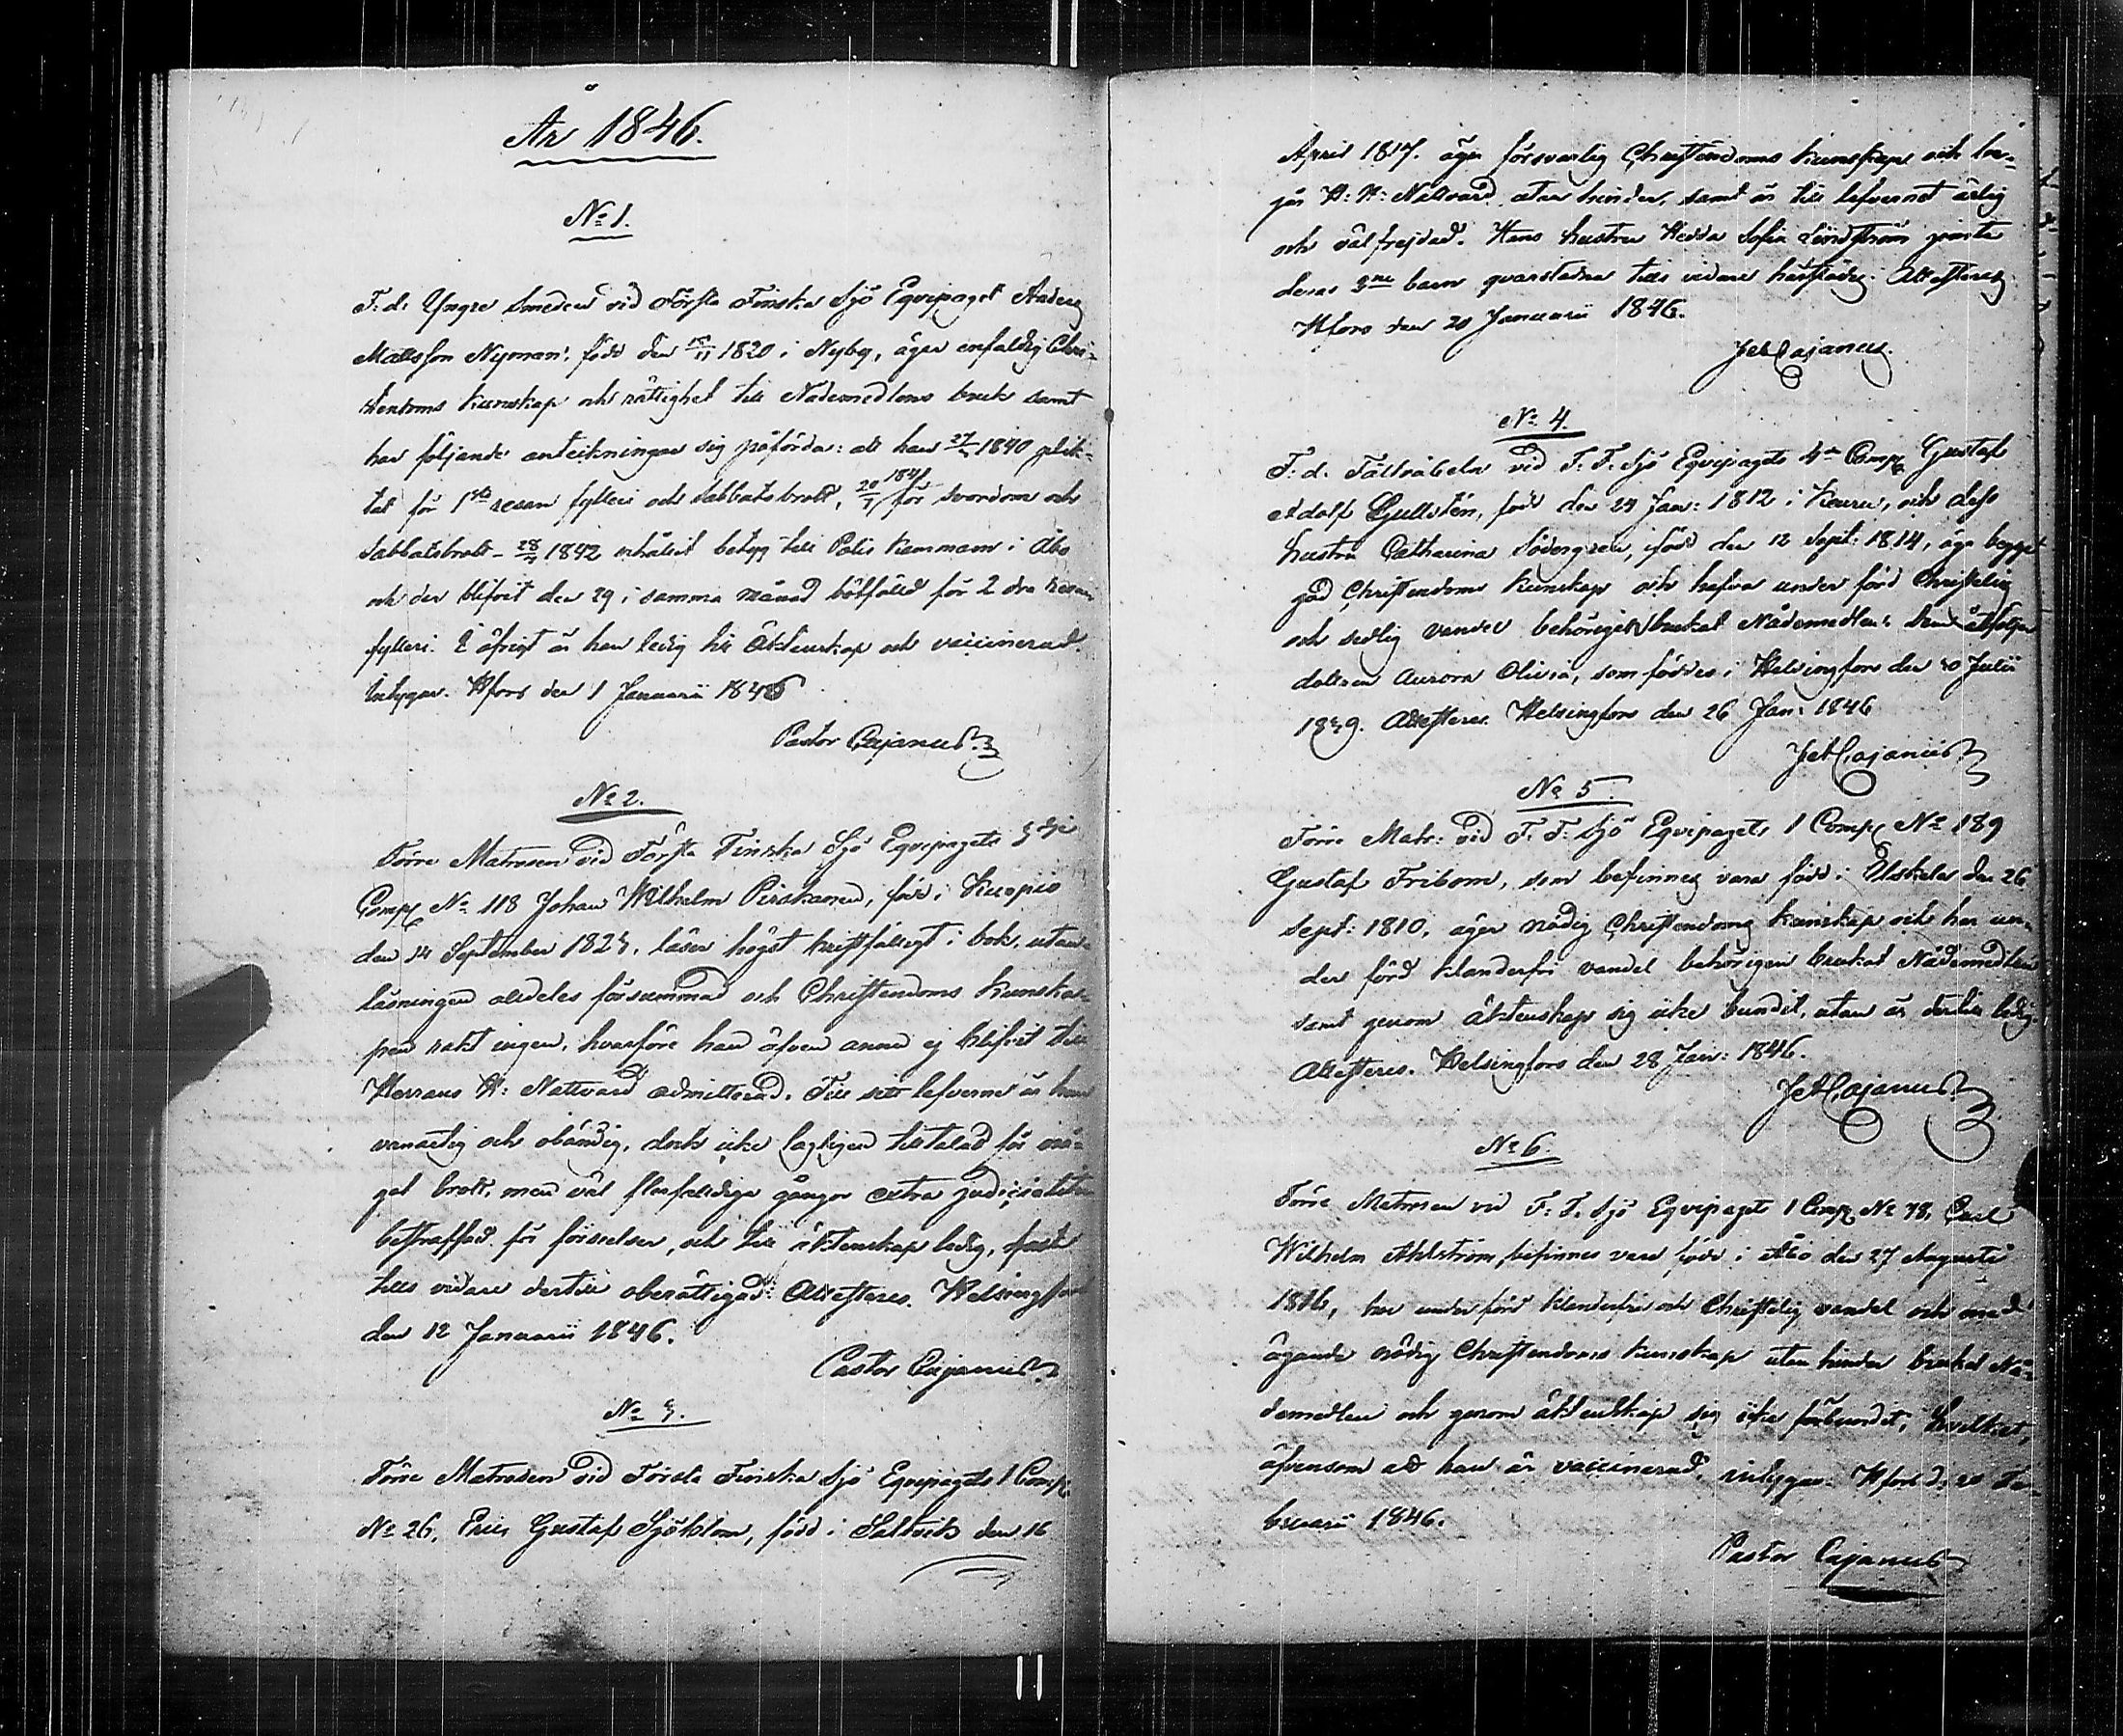 År 1846.
No 1.
F. d. Yngre Smeden vid Första Finska Sjö Eqvipaget Anders
Mattsson Nyman, född den 1820 i Nyby, äger enfaldig Chri-
stendoms kunskap och rättighet till Nådemedlens bruk samt
har följande anteckningar sig påförda: att han 27 1840 plik-
tat för 1sta resan fylleri och sabbatsbrott, 1841 för svordom och
Sabbatsbrott - 28 1842 erhållit betyg till Polis Kammarn i Åbo
och der blifvit den 29 i samma månad bötfälld för 2dra resan
fylleri. I öfrigt är han ledig till äktenskap och vaccinerad.
Intygar. Hfors den 1 Januarii 1846
Pastor Cajanus.
No 2.
Förre Matrosen vid Första Finska Sjö Eqvipagets 3dje
Comp. No 118 Johan Wilhelm Piiskanen, född i Kuopio
den 14 September 1823, läser högst bristfälligt i bok, utan-
läsningen alldeles försummad och Christendoms kunska-
pen rakt ingen, hvarföre han äfven ännu ej blifvit till
Herrans H: Nattvard admitterad. Till sitt lefverne är han
vanartig och obändig, dock icke lagligen tilltalad för nå-
got brott, men väl flerfalldiga gånger extra judicialiter
bestraffad för förseelser, och till äktenskap ledig, fast
tills vidare dertill oberättigad. Attesteres. Helsingfors
den 12 Januarii 1846.
Pastor Cajanus.
No 3.
Förre Matrosen vid Första Finska Sjö Eqvipagets 1 Comp.
No 26, Eric Gustaf Sjöblom, född i Saltvik den 16
April 1817. äger försvarlig Christendoms kunskap och be-
går H: H: Nattvard utan hinder, samt är till lefvernet ärlig
och välfrejdad. Hans hustru Hedda Sofia Lindström jemte
deras 3ne barn qvarstadna tills vidare härstädes. Attesteres.
Hfors den 20 Januarii 1846.
Cajanus.
No 4.
F. d. Fältväbeln vid F. F. Sjö Eqvipagets 4de Comp. Gustaf
Adolf Gullstén, född den 24 Jan: 1812 i Keuru, och dess
hustru Catharina Södergren, född den 12 Sept: 1814, äga begge
god Christendoms kunskap och hafva under förd Christelig
och sedlig vandel behörigen brukat Nådemedlen. Dem åtföljer
dottren Aurora Olivia, som föddes i Helsingfors den 10 Julii
1839. Attesteres. Helsingfors den 26 Jan: 1846
Cajanus
No 5.
Förre Matr: vid F. F. Sjö Eqvipagets 1 Comp. No 189
Gustaf Fribom, som befinnes vara född i Ulskela den 26
Sept: 1810, äger nödig Christendoms kunskap och har un-
der förd klanderfri vandel behörigen brukat Nådemedlen
samt genom äktenskap sig icke bundit, utan är dertill ledig.
Attesteres. Helsingfors den 28 Jan: 1846.
Cajanus
No 6.
Förre Matrosen vid F. F. Sjö Eqvipagets 1 Comp. No 78, Carl
Wilhelm Ahlström, befinnes vara född i Åbo den 27 Augusti
1816, har under förd klanderfri och Christelig vandel och med
ägande nödig Christendoms kunskap utan hinder brukat Nå-
demedlen och genom äktenskap sig icke förbundit, hvilket,
äfvensom att han är vaccinerad, intygar. Hfors d. 20 Fe-
bruarii 1846.
Pastor Cajanus